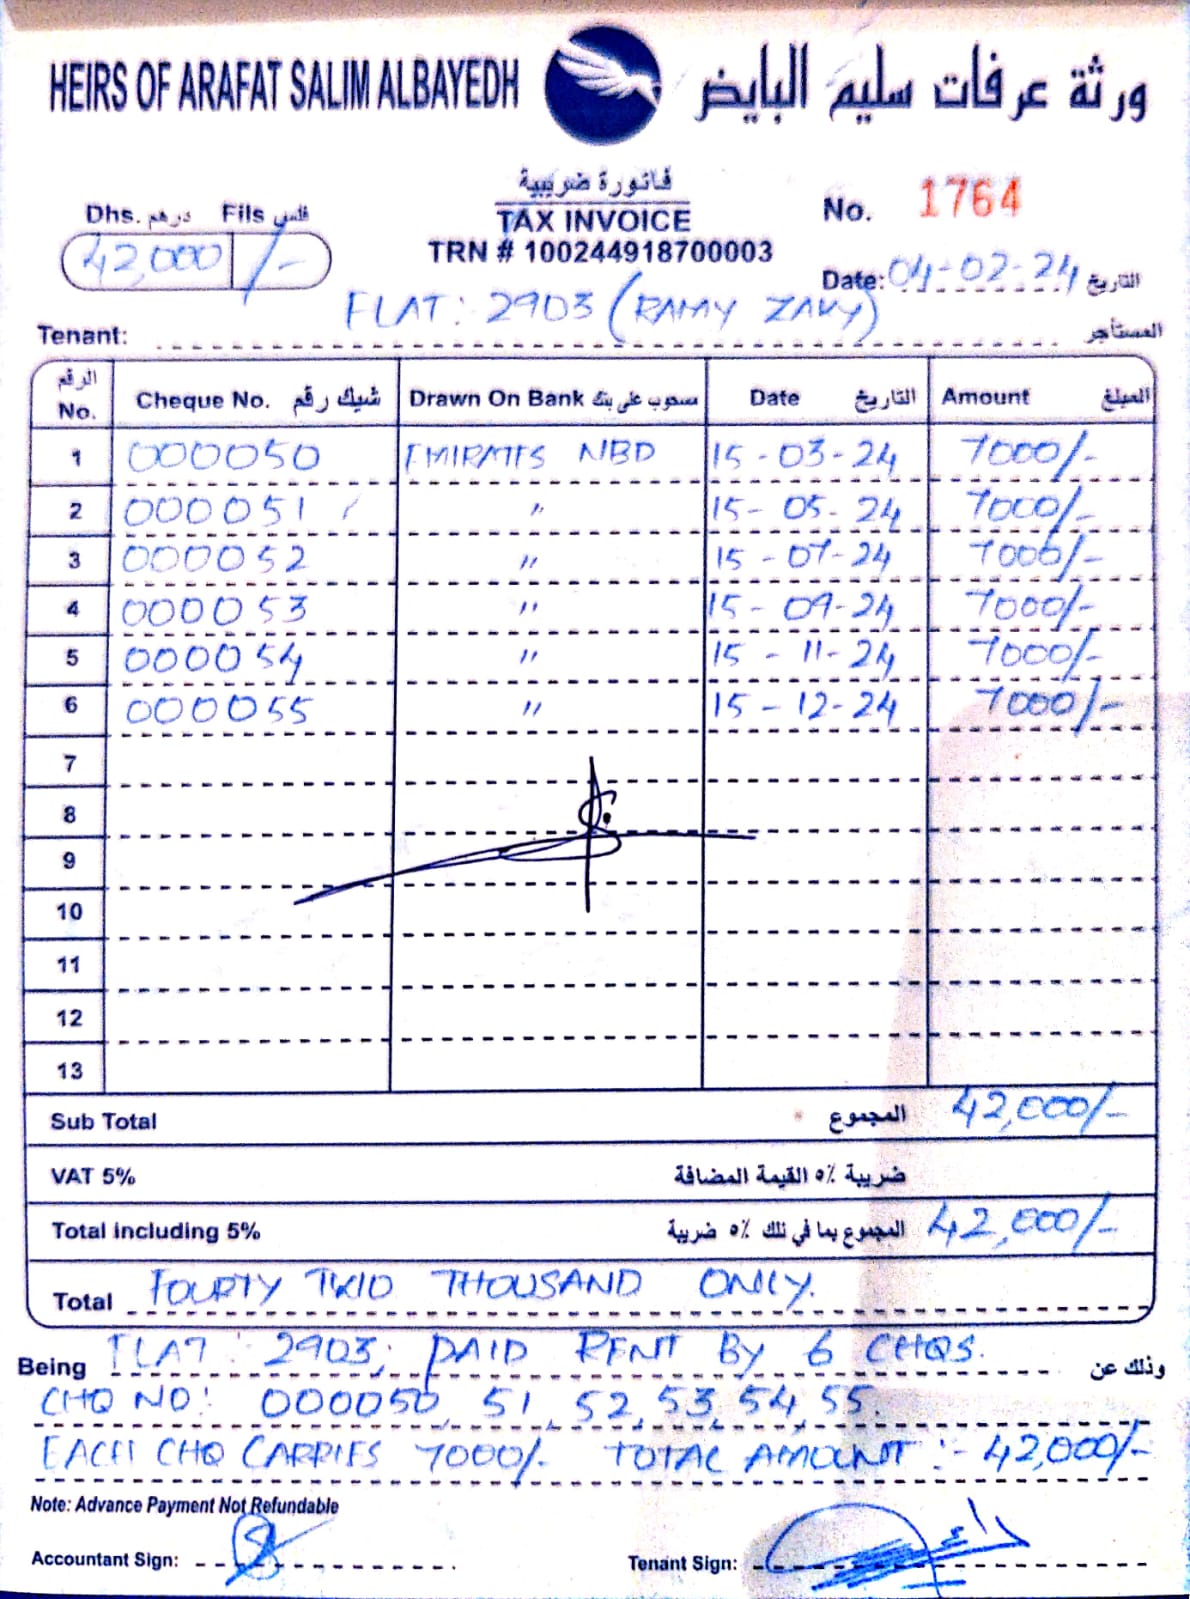 HEIRS OF ARAFAT SALIM ALBAYEDH ورثة عرفات سليم البايض
فاتورة ضريبية
TAX INVOICE
TRN # 100244918700003
Dhs. درهم Fils فلس
42,000 /-
No. 1764
Date: 04-02-24 التاريخ
Tenant: FLAT: 2903 (RAMY ZAKY) المستأجر
الرقم No. Cheque No. شيك رقم Drawn On Bank مسحوب على بنك Date التاريخ Amount المبلغ
1 000050 EMIRATES NBD 15-03-24 7000/-
2 000051 " 15-05-24 7000/-
3 000052 " 15-07-24 7000/-
4 000053 " 15-09-24 7000/-
5 000054 " 15-11-24 7000/-
6 000055 " 15-12-24 7000/-
7
8
9
10
11
12
13
Sub Total المجموع 42,000/-
VAT 5% ضريبة ٥٪ القيمة المضافة
Total including 5% المجموع بما في ذلك ٥٪ ضريبة 42,000/-
Total FOURTY TWO THOUSAND ONLY.
Being FLAT: 2903, PAID RENT BY 6 CHQS. وذلك عن
CHQ NO: 000050, 51, 52, 53, 54, 55.
EACH CHQ CARRIES 7000/- TOTAL AMOUNT :- 42,000/-
Note: Advance Payment Not Refundable
Accountant Sign: Tenant Sign: